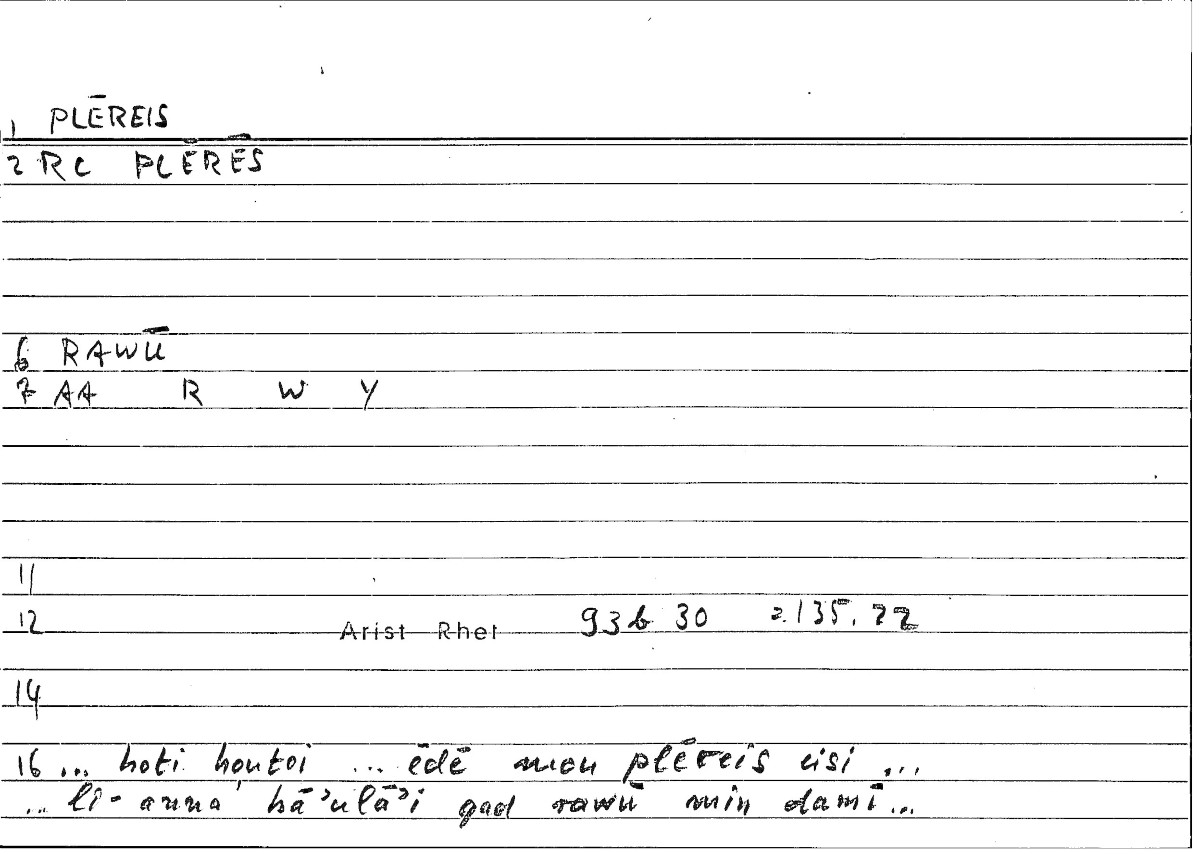 1 PLĒREIS
2 RC PLĒRĒS
6 RAWŪ
7 AA R W Y
11
12 Arist Rhet 93b 30 2.135.22
14
16 ... hoti houtoi ... ēdē mou plēreis eisi ...
... li-anna hāʾulāʾi qad rawū min damī...